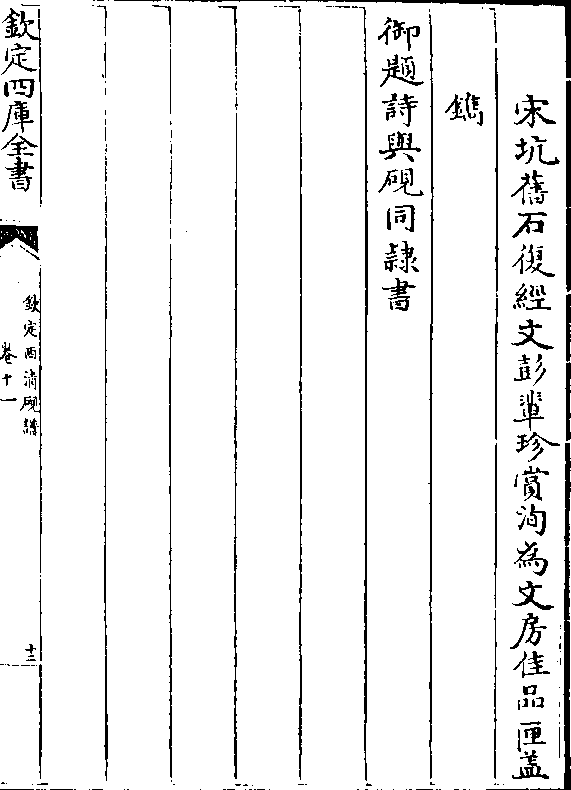 宋坑舊石復經文彭輩珍賞洵為文房佳品匣盖
鐫
御題詩與硯同隷書
欽定四庫全書
欽定西清硯譜
卷十一
十三